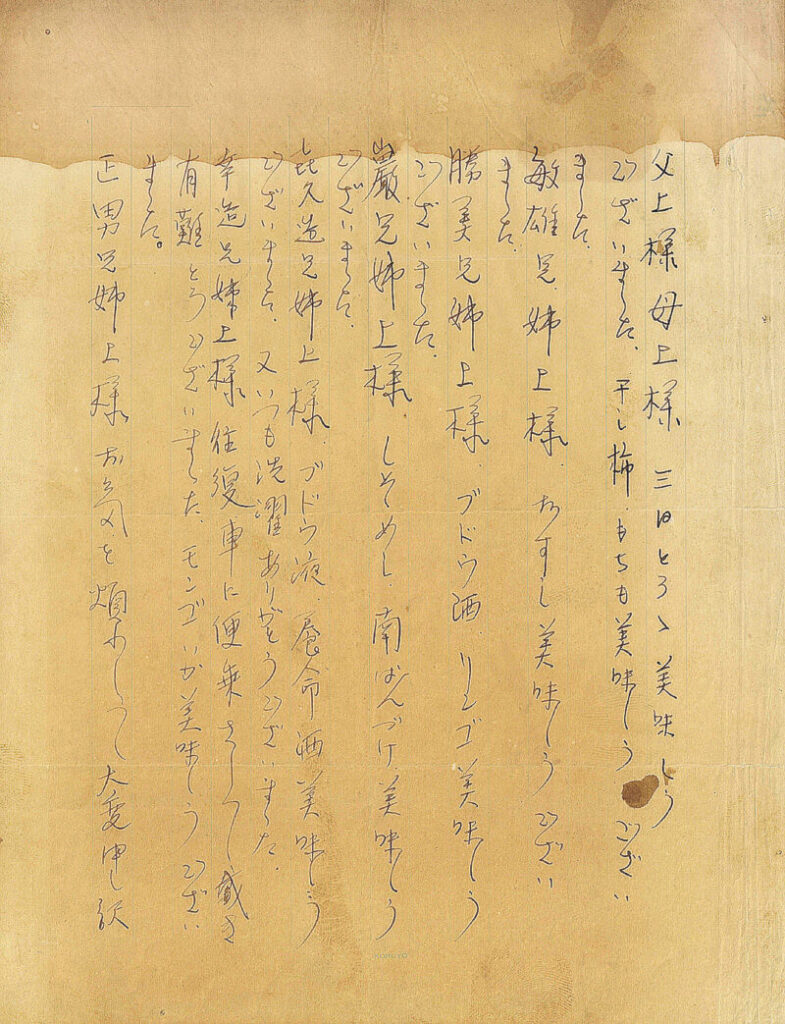 父上様母上様 三日とろゝ美味しう
ございました、干し柿、もちも美味しうござい
ました、
敏雄兄、姉上様、おすし美味しうござい
ました、
勝美兄姉上様、ブドウ酒、リンゴ美味しう
ございました、
巌兄姉上様、しそめし、南ばんづけ美味しう
ございました、
㐂久造兄姉上様、ブドウ液、養命酒美味しう
ございました、又いつも洗濯ありがとうございました、
幸造兄姉上様、往復車に便乗さして戴き
有難とうございました、モンゴいか美味しうござい
ました。
正男兄姉上様、お気を煩わして大変申し訳
KOKUYO